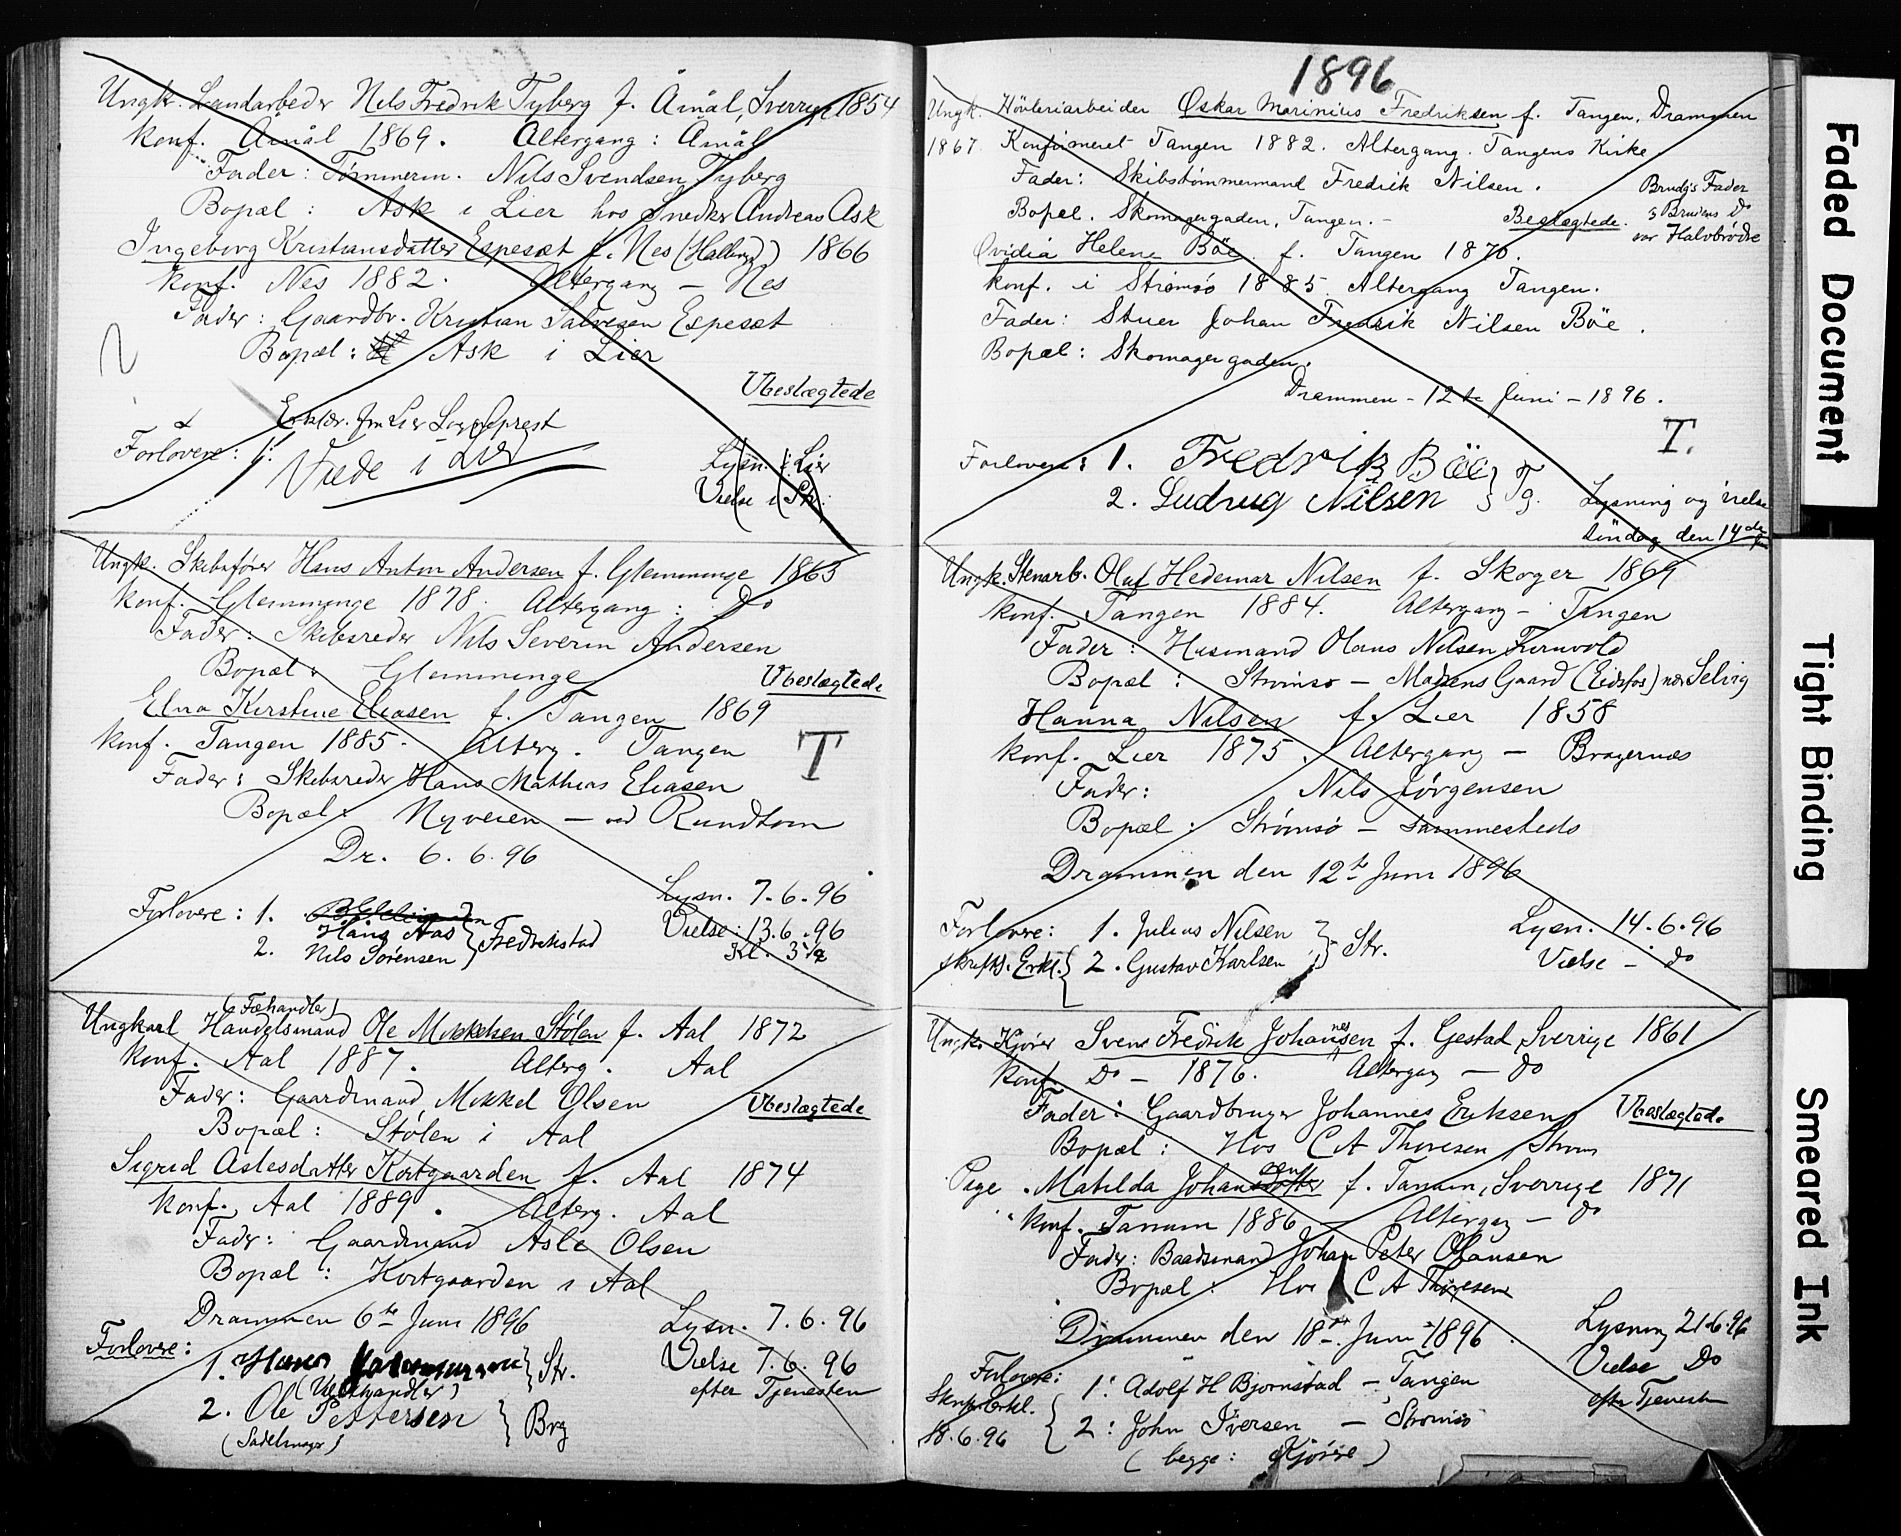 Ungk. Landarbeder Nels Fredrik Tyberg f. Åmål, Sverrige 1854
konf. Åmål 1869. Altergang: Åmål
Fader: Tømmerm. Nils Svendsen Tyberg
Bopæl: Ask i Lier hos Snedker Andreas Ask
Ingeborg Kristiansdatter Espesæt f. Nes (Hallingd.) 1866
konf. Nes 1882. Altergang — Nes
Fader: Gaardbr. Kristian Salvesen Espesæt
Bopæl: Ask i Lier
Ubeslægtede
Erklær. fra Lier Sogneprest
Forlovere: 1.
Viede i Lier
Lysn. i Lier
Vielse i Str.
Ungk. Skibsfører Hans Anton Andersen f. Glemminge 1863
konf. Glemminge 1878. Altergang: Do
Fader: Skibsreder Nils Severin Andersen
Bopæl: Glemminge
Ubeslægtede
Elna Kirstine Eliasen f. Tangen 1869
konf. Tangen 1885. Alterg. Tangen
T
Fader: Skibsreder Hans Mathias Eliasen
Bopæl: Nyveien — ved Rundtom
Dr. 6.6.96
Lysn. 7.6.96
Forlovere: 1.
Hans Aas
2. Nils Sørensen } Fredrikstad
Vielse: 13.6.96
Kl. 5 1/2
(Fæhandler)
Ungkarl Handelsmand Ole Mikkelsen Stølen f. Aal 1872
konf. Aal 1887. Alterg. Aal
Fader: Gaardmand Mikkel Olsen
Ubeslægtede
Bopæl: Stølen i Aal
Sigrid Aslesdatter Kortgaarden f. Aal 1874
konf. Aal 1889. Alterg. Aal
Fader: Gaardmand Asle Olsen
Bopæl: Kortgaarden i Aal
Drammen 6te Juni 1896
Lysn. 7.6.96
Forlovere:
1. Hans } Str.
Vielse 7.6.96
efter Tjenesten
2. Ole Pettersen } Brg
(Sadelmager)
1896
Ungk. Høvleriarbeider Oskar Marinius Fredriksen f. Tangen, Drammen
1867. Konfirmeret Tangen 1882. Altergang. Tangens Kirke
Fader: Skibstømmermand Fredrik Nilsen.
Brudg's Fader
Bopel. Skomagergaden, Tangen. -
Beslægtede.
& Brudens Do
var Halvbrødre
Ovidia Helene Böe. f. Tangen 1870.
konf. i Strømsö 1885 Altergang Tangen.
Fader: Stuer Johan Fredrik Nilsen Böe.
Bopæl: Skomagergaden.
Drammen - 12te Juni - 1896.
T.
Forlovere: 1. Fredrik Böe
2. Ludvig Nilsen } Tg.
Lysning og vielse
Söndag den 14de
Ungk. Stenarb. Olaf Hedemar Nilsen f. Skoger 1869
konf. Tangen 1884. Altergang — Tangen
Fader: Husmand Olaus Nilsen Furuvold
Bopæl: Strømsø — Madsens Gaard (Eidsfos) nær Selvig
Hanna Nilsen f. Lier 1858
konf. Lier 1875. Altergang — Bragernæs
Fader: Nils Jørgensen
Bopæl: Strømsø — sammesteds
Drammen den 12te Juni 1896
Forlovere: 1. Julius Nilsen } Str.
Lysn. 14.6.96
skriftl. Erkl. { 2. Gustav Karlsen
Vielse — do
Ungk. Kjører Sven Fredrik Johannesen f. Gestad, Sverrige 1861
konf. Do — 1876. Altergang — do
Fader: Gaardbruger Johannes Eriksen
Ubeslægtede
Bopæl: Hos C A Thoresen, Strøms
Pige. Matilda Johansen f. Tanum, Sverrige 1871
konf. Tanum 1886 Altergang — Do
Fader: Baadsmand Johan Peter Olausen
Bopæl: Hos C A Thoresen
Drammen den 18de Juni 1896.
Lysning 21.6.96
Vielse Do
efter Tjenesten
Forlovere:
Skriftl. Erkl.
18.6.96
1: Adolf H Bjornstad — Tangen
2: John Iversen — Strømsø
(begge: Kjørere)
Faded Document
Tight Binding
Smeared Ink